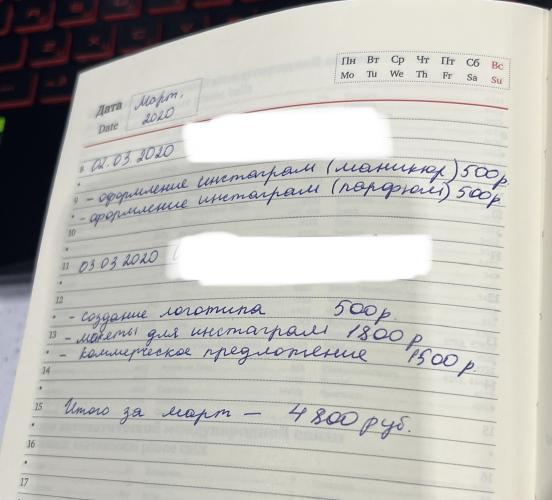 Пн Вт Ср Чт Пт Сб Вс
Mo Tu We Th Fr Sa Su
Дата Март.
Date 2020
8 02.03.2020
9 - оформление инстаграм (маникюр) 500р
- оформление инстаграм (парфюм) 500р
10
11 03 03 2020
12
- создание логотипа 500р.
13 - макеты для инстаграм 1800р
- коммерческое предложение 1500р.
14
15 Итого за март - 4800 руб.
16
17